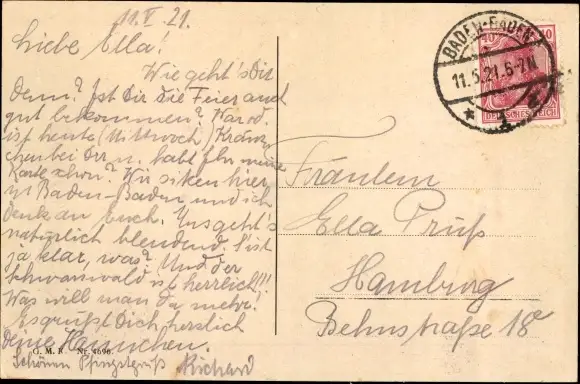 11.V.21.
Liebe Ella!
Wie geht's Dir
denn? Ist Dir die Feier auch
gut bekommen? War od.
ist heute (Mittwoch) Kränz-
chen bei Dir u. habt Ihr
Karte schon? Wir sitzen hier
in Baden-Baden und ich
denk an Euch. Uns geht's
natürlich blendend. S'ist
ja klar, was? Und der
Schwarzwald ist herrlich!!!
Was will man da mehr!
Es grüßt Dich herzlich
Deine
Schönen Pfingstgruß Richard
G. M. K. Nr. 4696.
BADEN-BADEN
11.5.21.6-7N
* 1
10 10
DEUTSCHES REICH
Fräulein
Ella Prüß
Hamburg
Behnstraße 18